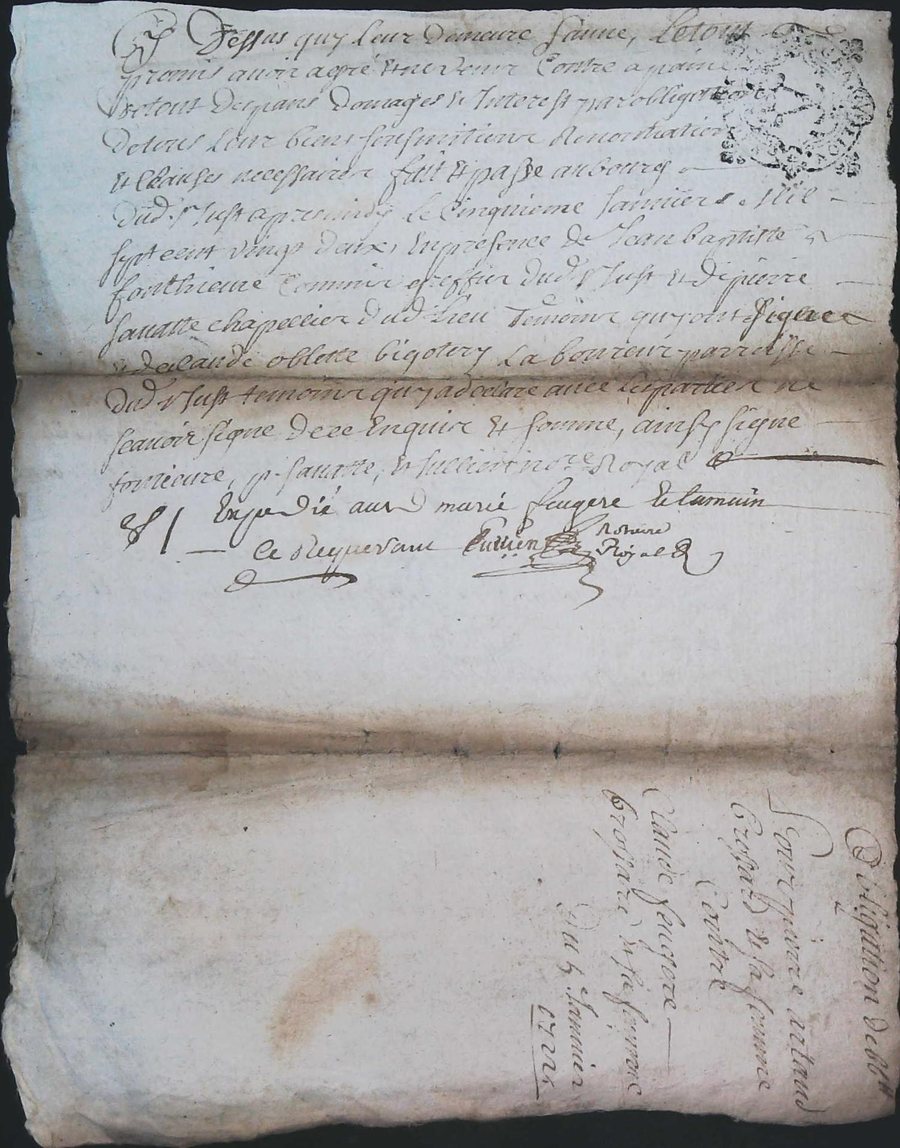 Dessus quy leur demeure sauve, le tout
promis avoir agré et ne venir contre a paine
de tous depans domages et Interest par obligation
de tous leur biens soumitions Renontiation
et Clauses necessaires fait et passé au bourg
dud. St Just apres midy le Cinquieme Janvier Mil
sept cent vingt deux, en presence de Jean baptiste
Commis greffier dud. St Just et de pierre
savatte chapellier dud. lieu Temoins quy ont signee
et de Claude laboureur parroisse
dud. St Just temoins quy a declare avec les parties ne
scavoir signe de ce Enquis et somme, ainsy signe
p. savatte, et Jullien nore Royal
Expedié aud marié fougere
Ce Requerant Jullien Notaire
Royal
Obligation de
Pour pierre artaud
brossard et sa femme
Contre
Claude fougere
brossard et sa femme
Du 5e Janvier
1722